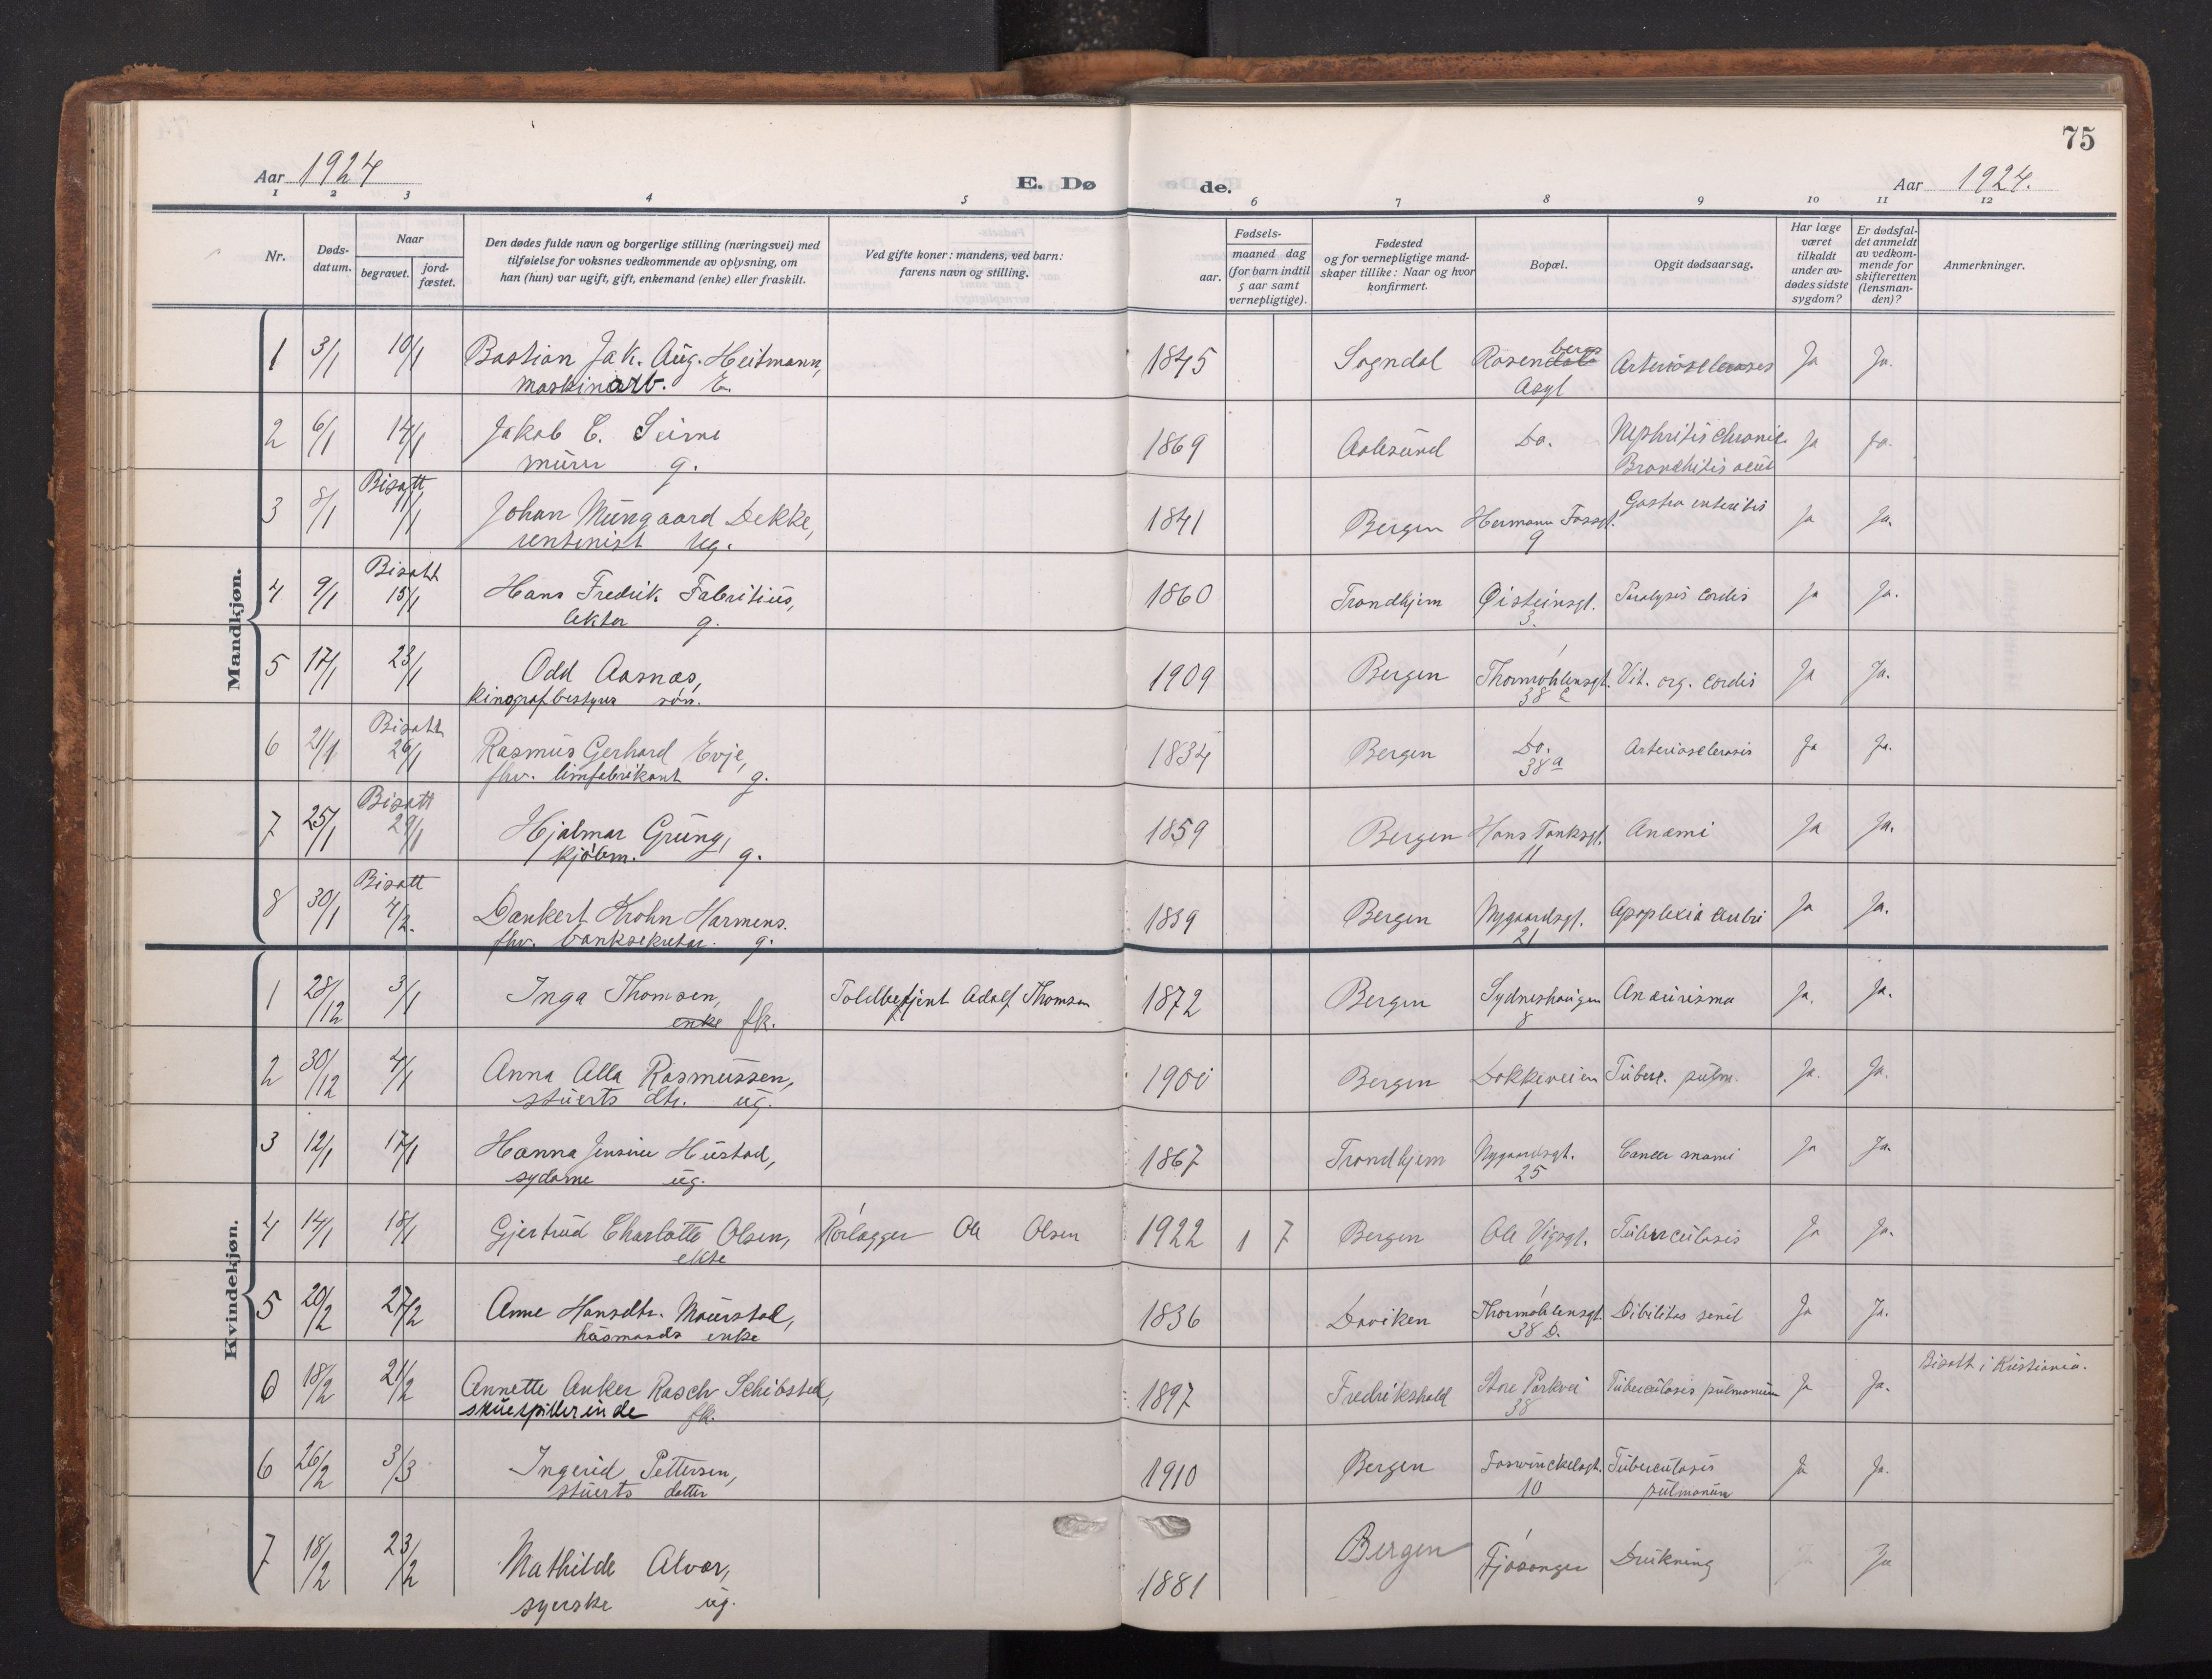 75
Aar 1924
E. Dø
de.
Aar 1924.
1 2 3 4 5 6 7 8 9 10 11 12
Nr.
Døds-
datum.
Naar
begravet.
jord-
fæstet.
Den dødes fulde navn og borgerlige stilling (næringsvei) med
tilføielse for voksnes vedkommende av oplysning, om
han (hun) var ugift, gift, enkemand (enke) eller fraskilt.
Ved gifte koner: mandens, ved barn:
farens navn og stilling.
Fødsels-
aar.
maaned dag
(for barn indtil
5 aar samt
vernepligtige).
Fødested
og for vernepligtige mand-
skaper tillike: Naar og hvor
konfirmert.
Bopæl.
Opgit dødsaarsag.
Har læge
været
tilkaldt
under av-
dødes sidste
sygdom?
Er dødsfal-
det anmeldt
av vedkom-
mende for
skifteretten
(lensman-
den)?
Anmerkninger.
Mandkjøn.
1 3/1 10/1 Bastian Jak. Aug. Heitmann, 1845 Sogndal Rosendal berg Arteriosclerosis Ja Ja.
maskinarb. E. Asyl
2 6/1 14/1 Jakob C. Seime 1869 Aalesund Do. Nephritis chronic. Ja Ja.
murer g. Bronchitis acut
Bisatt
3 8/1 11/1 Johan Mungaard Dekke, 1841 Bergen Hermann Fossgt. Gastro enteritis Ja Ja.
rentenist ug. 9
Bisatt
4 9/1 15/1 Hans Fredrik Fabritius, 1860 Trondhjem Øisteinsgt. Paralysis cordis Ja Ja.
lektor g. 3.
5 17/1 23/1 Odd Aasnæs, 1909 Bergen Thormøhlensgt. Vit. org. cordis Ja Ja.
kinografbestyrer søn. 38 C
Bisatt
6 21/1 26/1 Rasmus Gerhard Evje, 1834 Bergen Do. Arteriosclerosis Ja Ja.
fhv. limfabrikant g. 38a
Bisatt
7 25/1 29/1 Hjalmar Grung, 1859 Bergen Hans Tanksgt. Anæmi Ja Ja.
kjøbm. g. 11
Bisatt
8 30/1 4/2. Dankert Krohn Harmens. 1839 Bergen Nygaardsgt. Apoplexia cerebri Ja Ja.
fhv. banksekretær. g. 21
Kvindekjøn.
1 28/12 3/1 Inga Thomsen, Toldbetjent Adolf Thomsen 1872 Bergen Sydneshaugen Aneurisma Ja. Ja.
enke fk. 8
2 30/12 4/1 Anna Alla Rasmussen, 1900 Bergen Dokkeveien Tuberc. pulm. Ja. Ja.
stuerts dtr. ug. 1
3 12/1 17/1 Hanna Jensine Hustad, 1867 Trondhjem Nygaardsgt. Cancer mami Ja Ja.
sydame ug. 25
4 14/1 18/1 Gjertrud Charlotte Olsen, Rørlægger Ole Olsen 1922 1 7 Bergen Ole Vigsgt. Tuberculosis Ja Ja.
ekte 6
5 20/2 27/2 Anne Hansdtr. Maurstad, 1836 Daviken Thormøhlensgt. Dibilitas senil Ja Ja.
husmands enke 38 D.
6 18/2 21/2 Annette Anker Rasch Schibsted, 1897 Fredrikshald Store Parkvei Tuberculosis pulmonum Ja Ja. Bisatt i Kristiania.
skuespillerinde fk. 38
6 26/2 3/3 Ingerid Pettersen, 1910 Bergen Foswinckelsgt. Tuberculosis Ja Ja.
stuerts datter 10 pulmonum
7 18/2 23/2 Mathilde Alvær, 1881 Bergen Fjøsanger Drukning Ja
syerske ug.